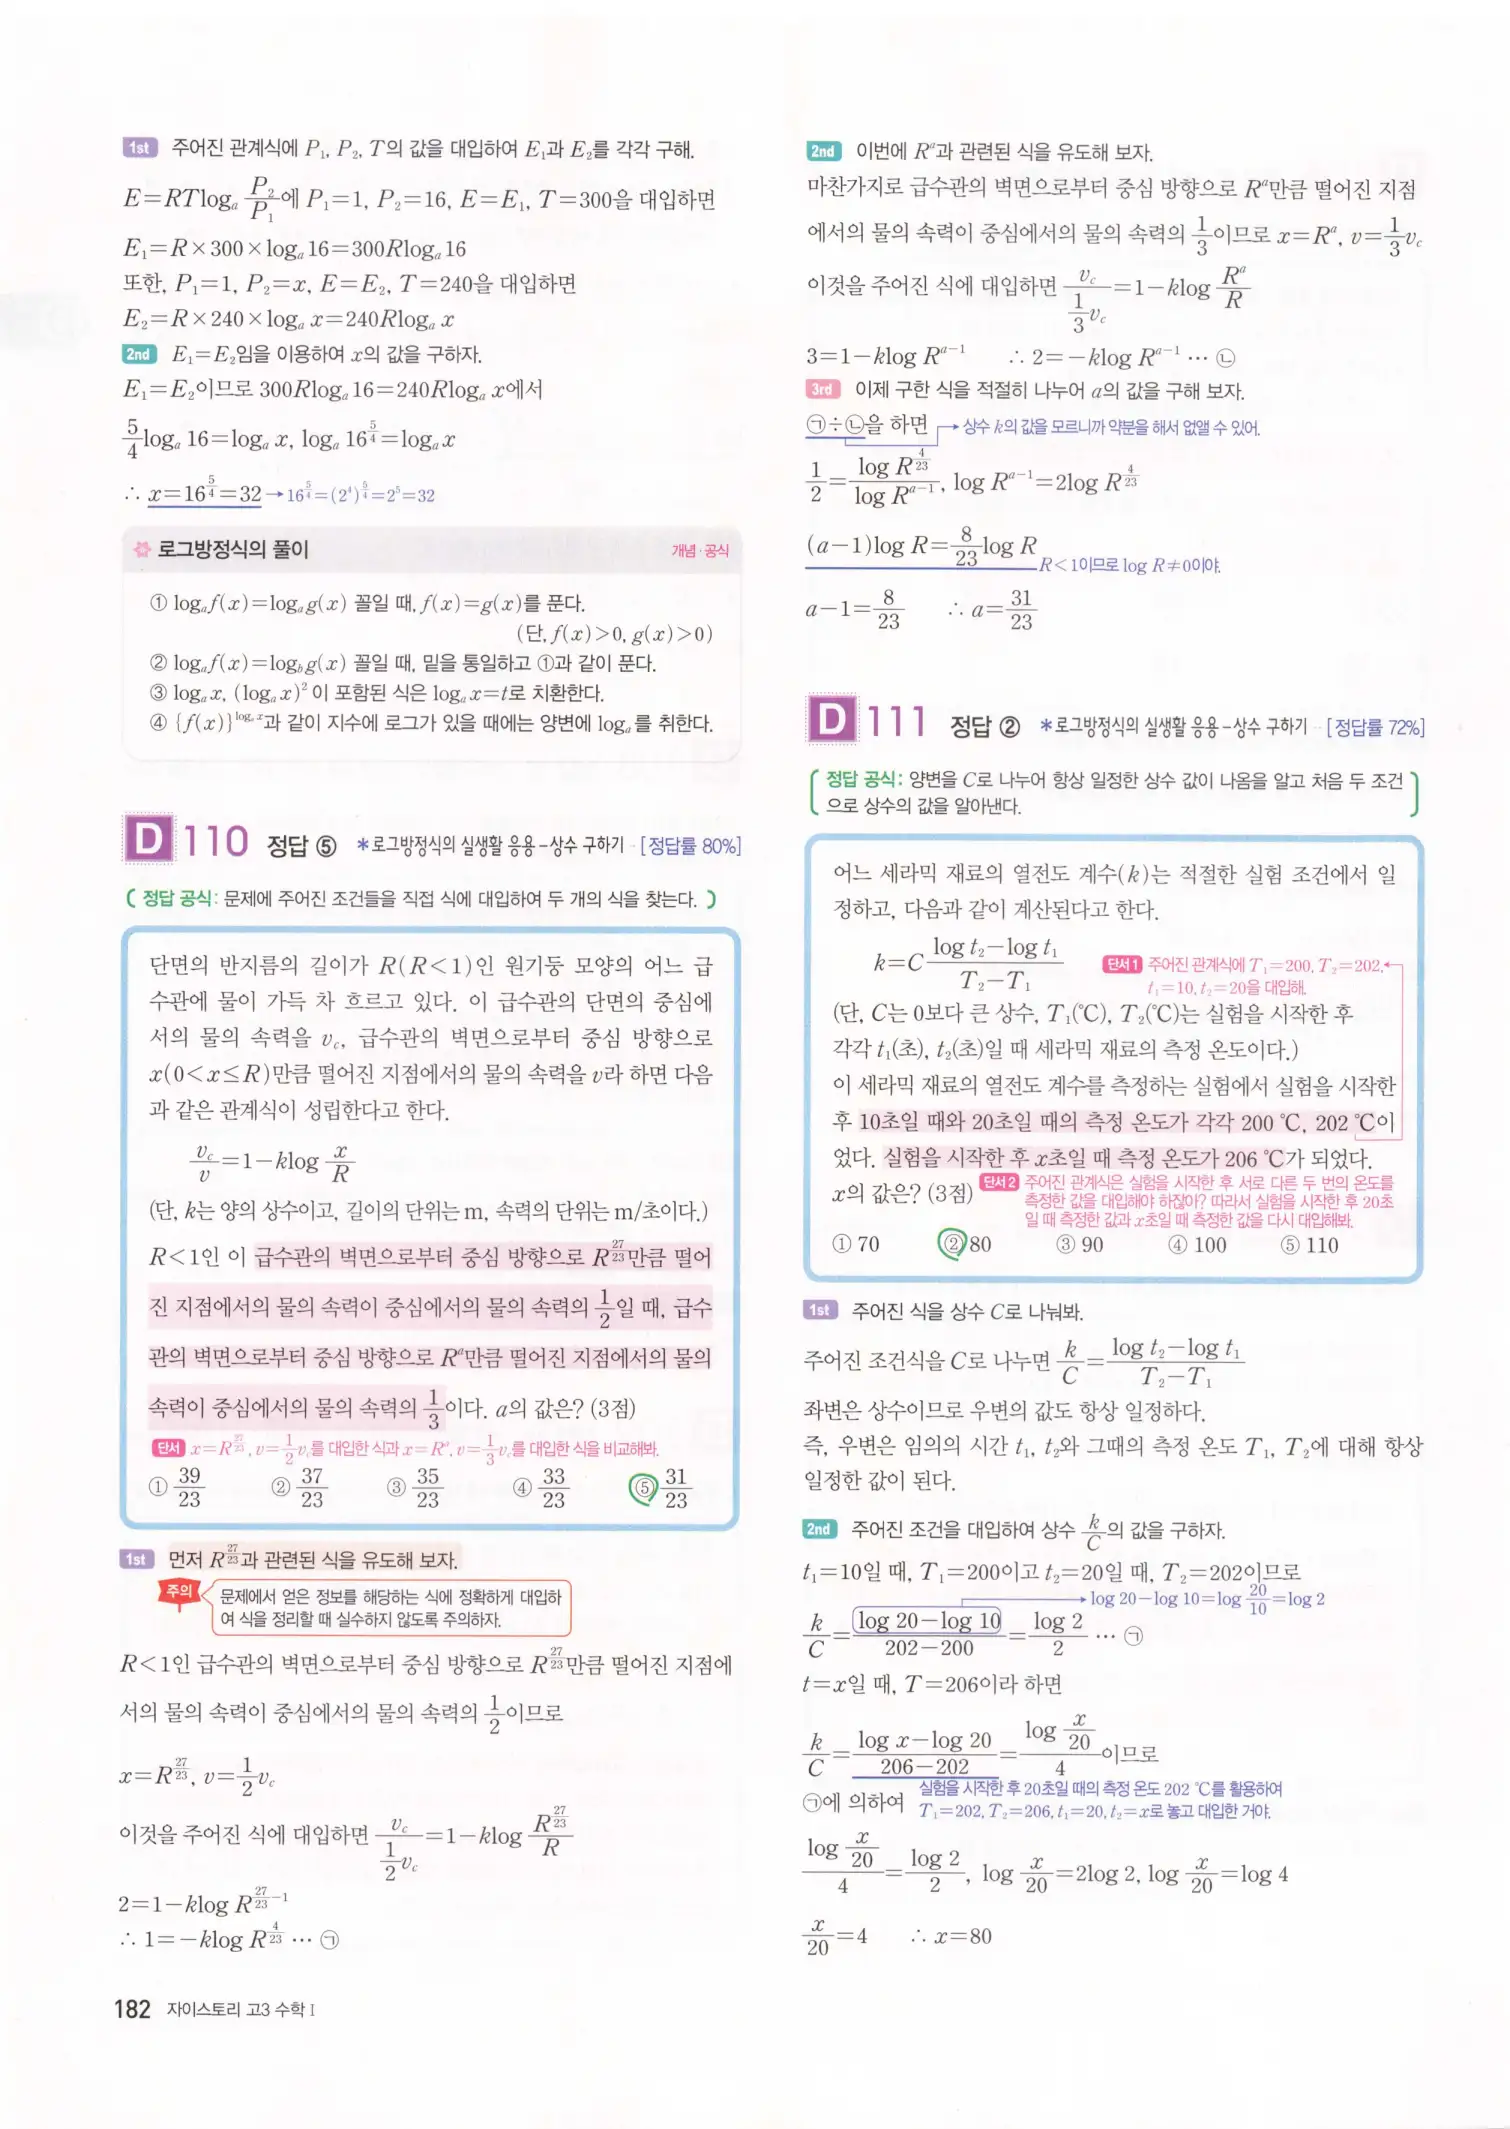 1st 주어진 관계식에 P₁, P₂, T의 값을 대입하여 E₁과 E₂를 각각 구해.
E=RTlogₐ P₂/P₁에 P₁=1, P₂=16, E=E₁, T=300을 대입하면
E₁=R×300×logₐ16=300Rlogₐ16
또한, P₁=1, P₂=x, E=E₂, T=240을 대입하면
E₂=R×240×logₐ x=240Rlogₐ x
2nd E₁=E₂임을 이용하여 x의 값을 구하자.
E₁=E₂이므로 300Rlogₐ16=240Rlogₐ x에서
5/4 logₐ 16=logₐ x, logₐ 16^(5/4)=logₐ x
∴ x=16^(5/4)=32 → 16^(5/4)=(2⁴)^(5/4)=2⁵=32
로그방정식의 풀이 개념·공식
① logₐf(x)=logₐg(x) 꼴일 때, f(x)=g(x)를 푼다.
(단, f(x)>0, g(x)>0)
② logₐf(x)=log_b g(x) 꼴일 때, 밑을 통일하고 ①과 같이 푼다.
③ logₐx, (logₐx)²이 포함된 식은 logₐx=t로 치환한다.
④ {f(x)}^(logₐ x)과 같이 지수에 로그가 있을 때에는 양변에 logₐ를 취한다.
D 110 정답 ⑤ *로그방정식의 실생활 응용-상수 구하기 [정답률 80%]
( 정답 공식: 문제에 주어진 조건들을 직접 식에 대입하여 두 개의 식을 찾는다. )
단면의 반지름의 길이가 R(R<1)인 원기둥 모양의 어느 급
수관에 물이 가득 차 흐르고 있다. 이 급수관의 단면의 중심에
서의 물의 속력을 v_c, 급수관의 벽면으로부터 중심 방향으로
x(0<x≤R)만큼 떨어진 지점에서의 물의 속력을 v라 하면 다음
과 같은 관계식이 성립한다고 한다.
v_c/v=1-klog x/R
(단, k는 양의 상수이고, 길이의 단위는 m, 속력의 단위는 m/초이다.)
R<1인 이 급수관의 벽면으로부터 중심 방향으로 R^(27/23)만큼 떨어
진 지점에서의 물의 속력이 중심에서의 물의 속력의 1/2일 때, 급수
관의 벽면으로부터 중심 방향으로 R^a만큼 떨어진 지점에서의 물의
속력이 중심에서의 물의 속력의 1/3이다. a의 값은? (3점)
단서 x=R^(27/23), v=1/2 v_c를 대입한 식과 x=R^a, v=1/3 v_c를 대입한 식을 비교해봐.
① 39/23 ② 37/23 ③ 35/23 ④ 33/23 ⑤ 31/23
1st 먼저 R^(27/23)과 관련된 식을 유도해 보자.
주의 문제에서 얻은 정보를 해당하는 식에 정확하게 대입하
여 식을 정리할 때 실수하지 않도록 주의하자.
R<1인 급수관의 벽면으로부터 중심 방향으로 R^(27/23)만큼 떨어진 지점에
서의 물의 속력이 중심에서의 물의 속력의 1/2이므로
x=R^(27/23), v=1/2 v_c
이것을 주어진 식에 대입하면 v_c/(1/2 v_c)=1-klog R^(27/23)/R
2=1-klog R^(27/23-1)
∴ 1=-klog R^(4/23) … ㉠
182 자이스토리 고3 수학 I
2nd 이번에 R^a과 관련된 식을 유도해 보자.
마찬가지로 급수관의 벽면으로부터 중심 방향으로 R^a만큼 떨어진 지점
에서의 물의 속력이 중심에서의 물의 속력의 1/3이므로 x=R^a, v=1/3 v_c
이것을 주어진 식에 대입하면 v_c/(1/3 v_c)=1-klog R^a/R
3=1-klog R^(a-1) ∴ 2=-klog R^(a-1) … ㉡
3rd 이제 구한 식을 적절히 나누어 a의 값을 구해 보자.
㉠÷㉡을 하면 → 상수 k의 값을 모르니까 약분을 해서 없앨 수 있어.
1/2=log R^(4/23)/log R^(a-1), log R^(a-1)=2log R^(4/23)
(a-1)log R=8/23 log R R<1이므로 log R≠0이야.
a-1=8/23 ∴ a=31/23
D 111 정답 ② *로그방정식의 실생활 응용-상수 구하기 [정답률 72%]
정답 공식: 양변을 C로 나누어 항상 일정한 상수 값이 나옴을 알고 처음 두 조건
으로 상수의 값을 알아낸다.
어느 세라믹 재료의 열전도 계수(k)는 적절한 실험 조건에서 일
정하고, 다음과 같이 계산된다고 한다.
k=C (log t₂-log t₁)/(T₂-T₁) 단서1 주어진 관계식에 T₁=200, T₂=202,
t₁=10, t₂=20을 대입해.
(단, C는 0보다 큰 상수, T₁(℃), T₂(℃)는 실험을 시작한 후
각각 t₁(초), t₂(초)일 때 세라믹 재료의 측정 온도이다.)
이 세라믹 재료의 열전도 계수를 측정하는 실험에서 실험을 시작한
후 10초일 때와 20초일 때의 측정 온도가 각각 200 ℃, 202 ℃이
었다. 실험을 시작한 후 x초일 때 측정 온도가 206 ℃가 되었다.
x의 값은? (3점) 단서2 주어진 관계식은 실험을 시작한 후 서로 다른 두 번의 온도를
측정한 값을 대입해야 하잖아? 따라서 실험을 시작한 후 20초
일 때 측정한 값과 x초일 때 측정한 값을 다시 대입해봐.
① 70 ② 80 ③ 90 ④ 100 ⑤ 110
1st 주어진 식을 상수 C로 나눠봐.
주어진 조건식을 C로 나누면 k/C=(log t₂-log t₁)/(T₂-T₁)
좌변은 상수이므로 우변의 값도 항상 일정하다.
즉, 우변은 임의의 시간 t₁, t₂와 그때의 측정 온도 T₁, T₂에 대해 항상
일정한 값이 된다.
2nd 주어진 조건을 대입하여 상수 k/C의 값을 구하자.
t₁=10일 때, T₁=200이고 t₂=20일 때, T₂=202이므로
→ log 20-log 10=log 20/10=log 2
k/C=(log 20-log 10)/(202-200)=log 2/2 … ㉠
t=x일 때, T=206이라 하면
k/C=(log x-log 20)/(206-202)=(log x/20)/4이므로
실험을 시작한 후 20초일 때의 측정 온도 202 ℃를 활용하여
㉠에 의하여 T₁=202, T₂=206, t₁=20, t₂=x로 놓고 대입한 거야.
(log x/20)/4=log 2/2, log x/20=2log 2, log x/20=log 4
x/20=4 ∴ x=80